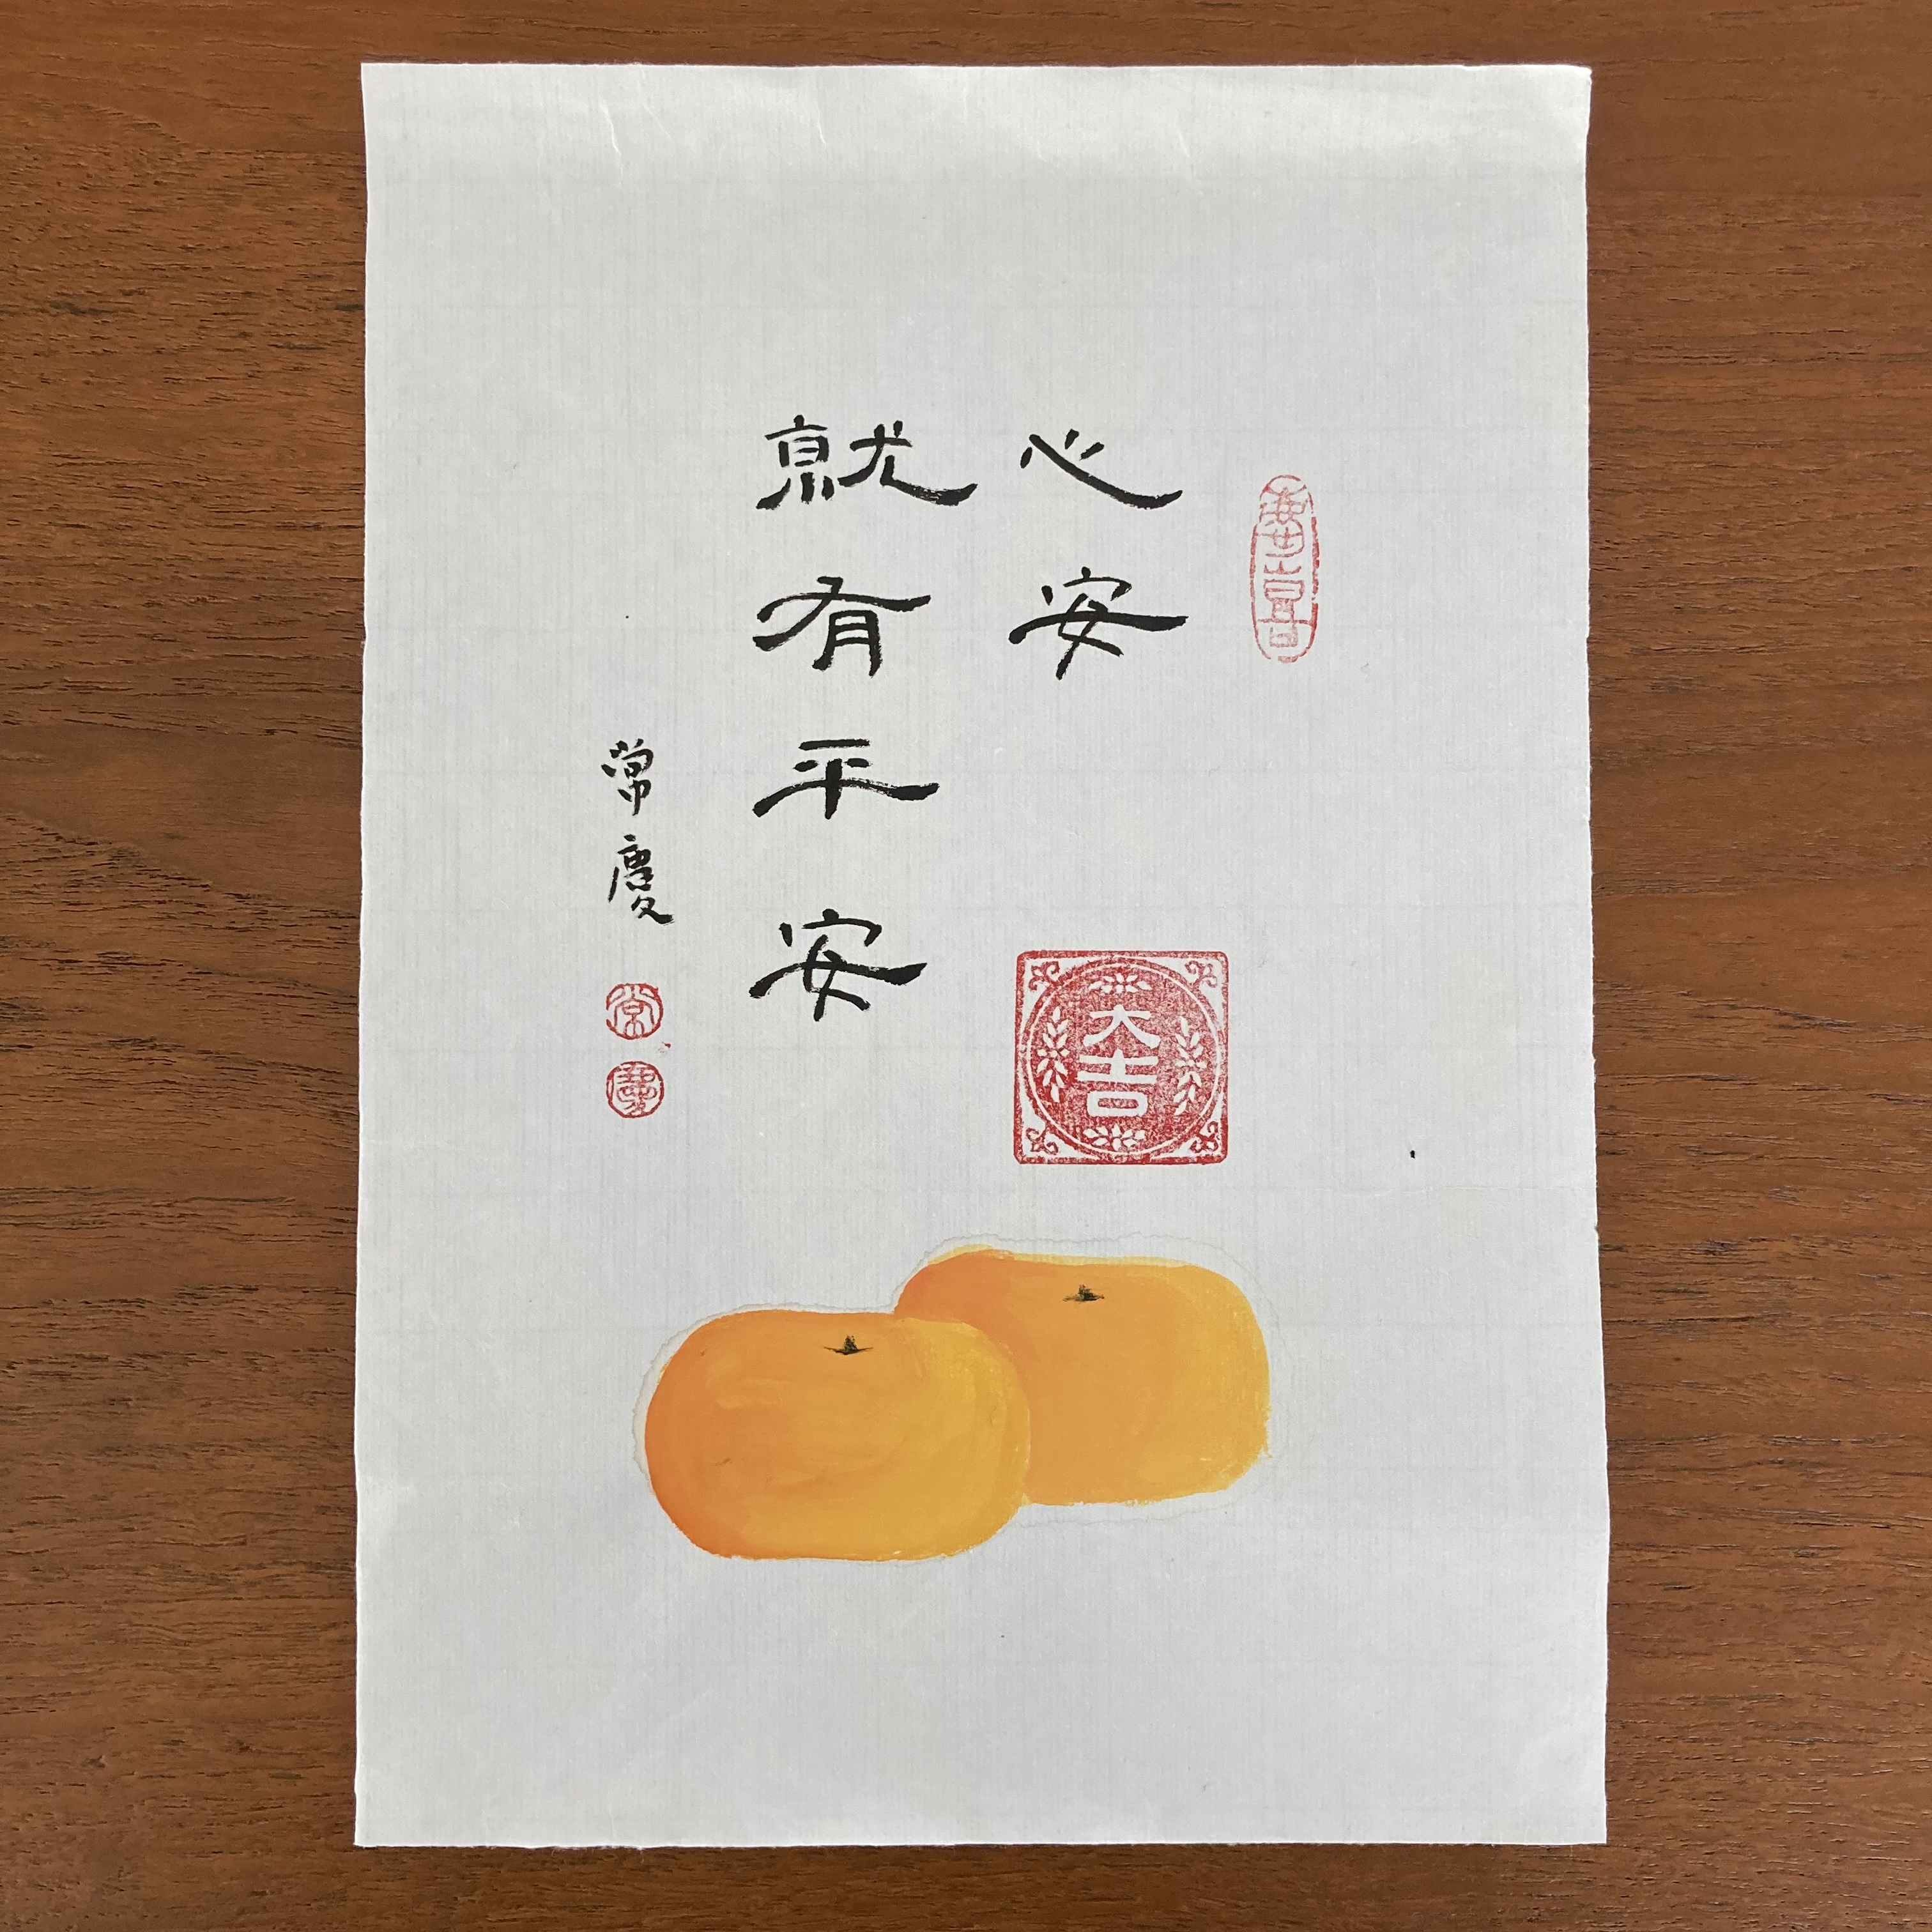 心安
就有平安
常慶
大吉
常
慶